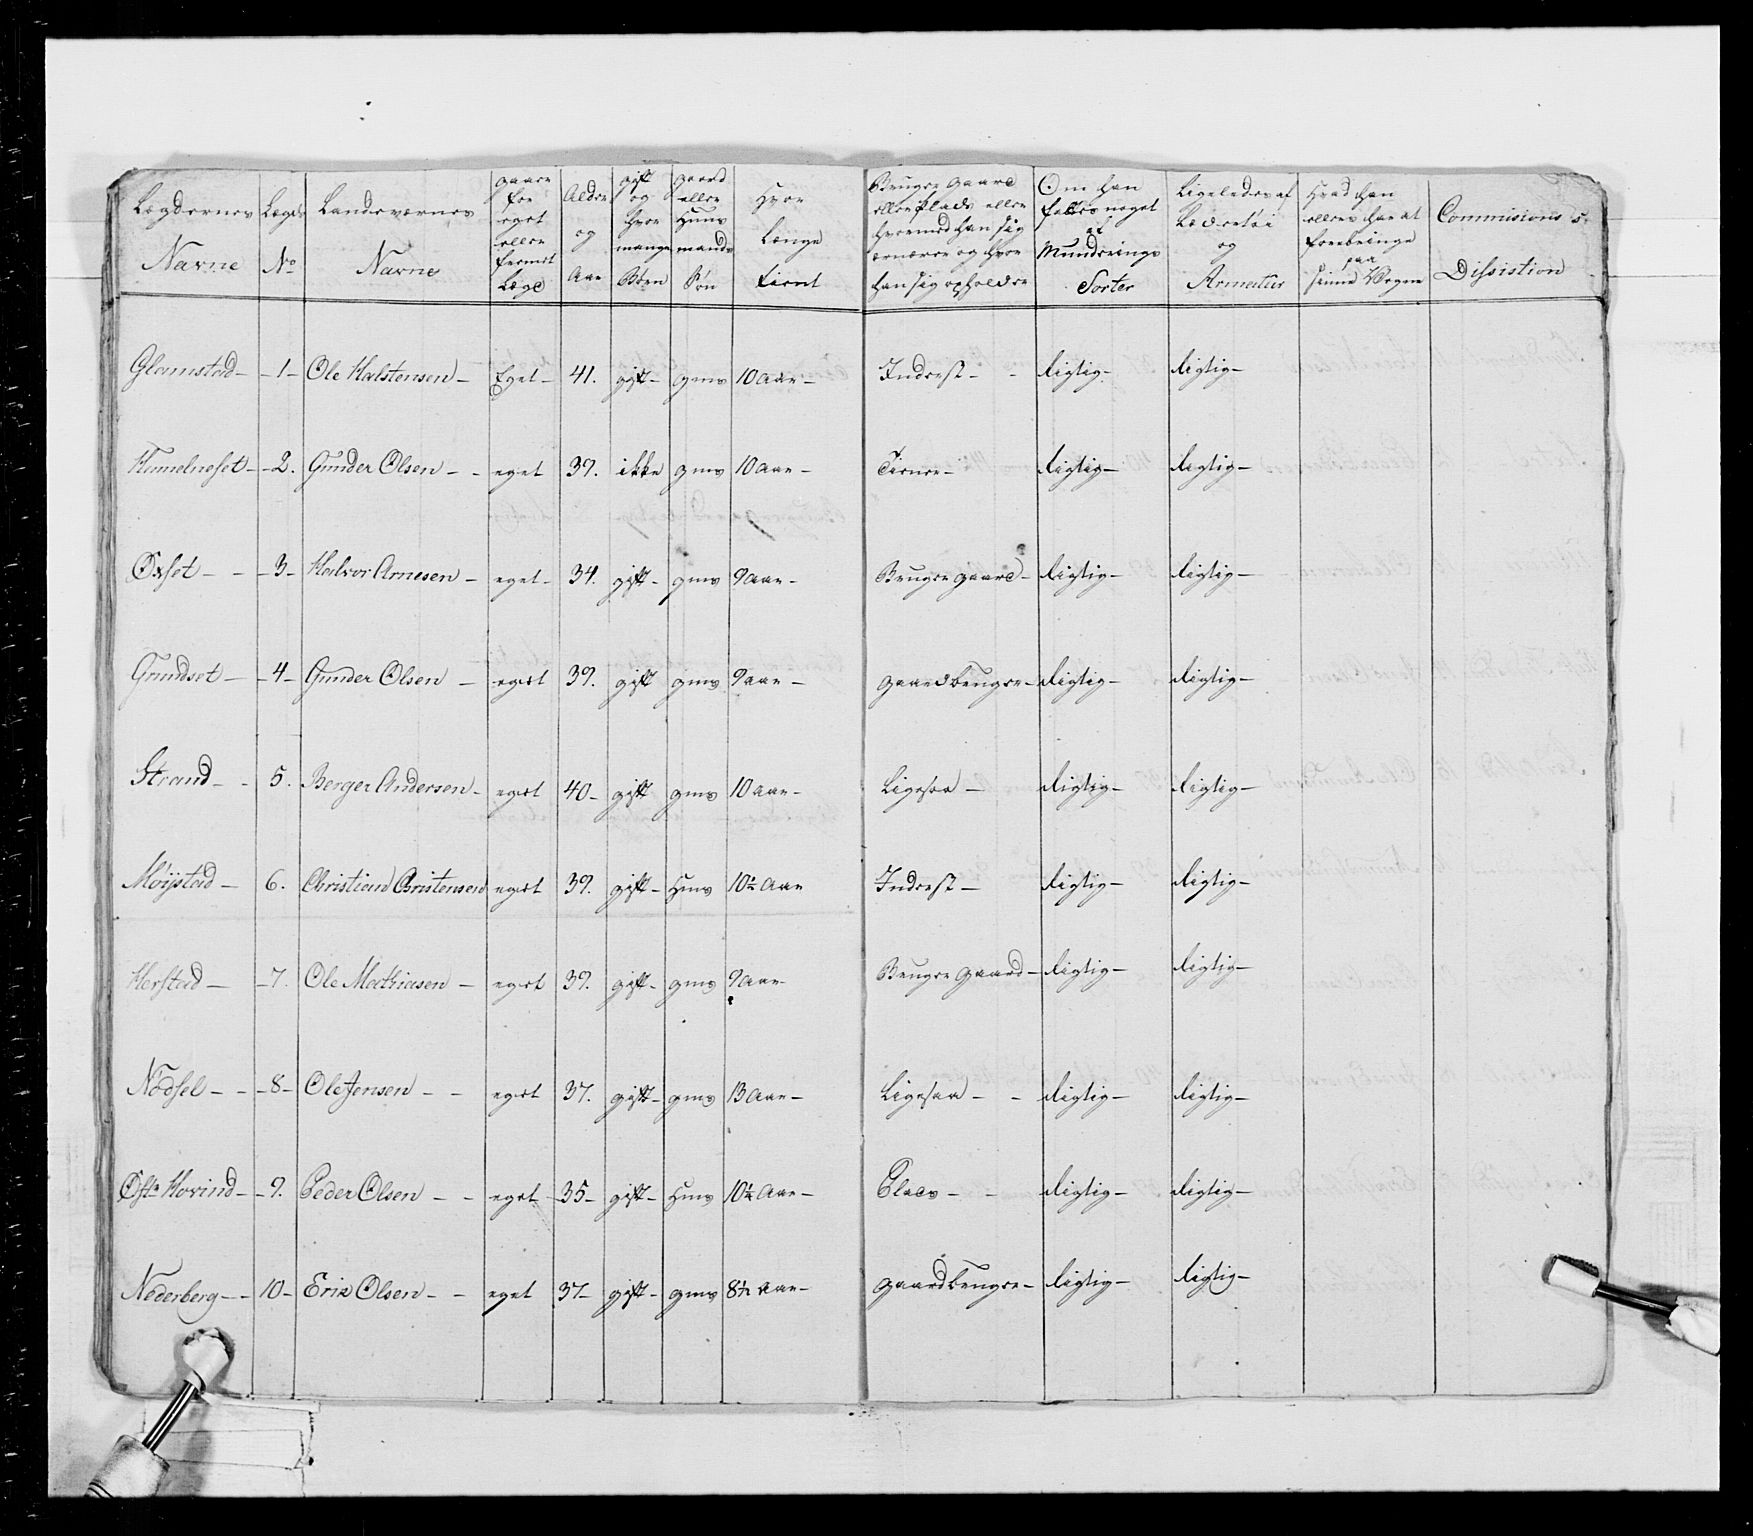 Lægdernes Navne | Lægds No | Landeværnes Navne | gaaer for eget eller fremet Læge | Alder og Aar | gift og hvor mange Børn | gaard eller Huus mands Søn | Hvor Længe tient | Bruger gaard eller Plads eller hvormed han sig ernærer og hvor han sig opholder | Om han fattes noget af Mundrings Sorter | Ligeledes af Lædertöi og Armatur | Hvad han ellers har at forebringe paa sinne Vegne | Commisions Disistion
Glomstad - 1 - Ole Halstensen - Eget - 41. gift - gms 10 Aar - Inderst - - Rigtig - Rigtig -
Hemelneset - 2. Gunder Olsen - - eget 39. ikke gms 10 Aar - Tiener - Rigtig - Rigtig -
Oxset - - 3 - Halvor Arnesen - eget - 34. gift - gms 9 Aar - Bruger gaard - Rigtig - Rigtig -
Grundset - 4 - Gunder Olsen - eget 39. gift gms 9 aar - gaardbruger - Rigtig - Rigtig -
Strand - - 5. Berger Andersen - eget 40 - gift gms 10 Aar - Ligesaa - Rigtig - Rigtig -
Möystad - 6. Christian Christensen eget 39. gift - Hms 10½ Aar Inderst - Rigtig - Rigtig -
Herstad - 7. Ole Mathiesen - eget 39. gift - gms 9 Aar Bruger gaard - Rigtig - Rigtig -
Nödsel - - 8 - Ole Jensen - - eget 37. gift - gms 13 Aar - Ligesaa - - Rigtig - Rigtig -
Øste Hovind - 9. Peder Olsen - - eget 35 - gift - Hms 10½ Aar - Plads - Rigtig - Rigtig -
Nederberg - - 10 - Erik Olsen - - eget 37 - gift - gms 8½ Aar - gaardbruger - Rigtig - Rigtig -